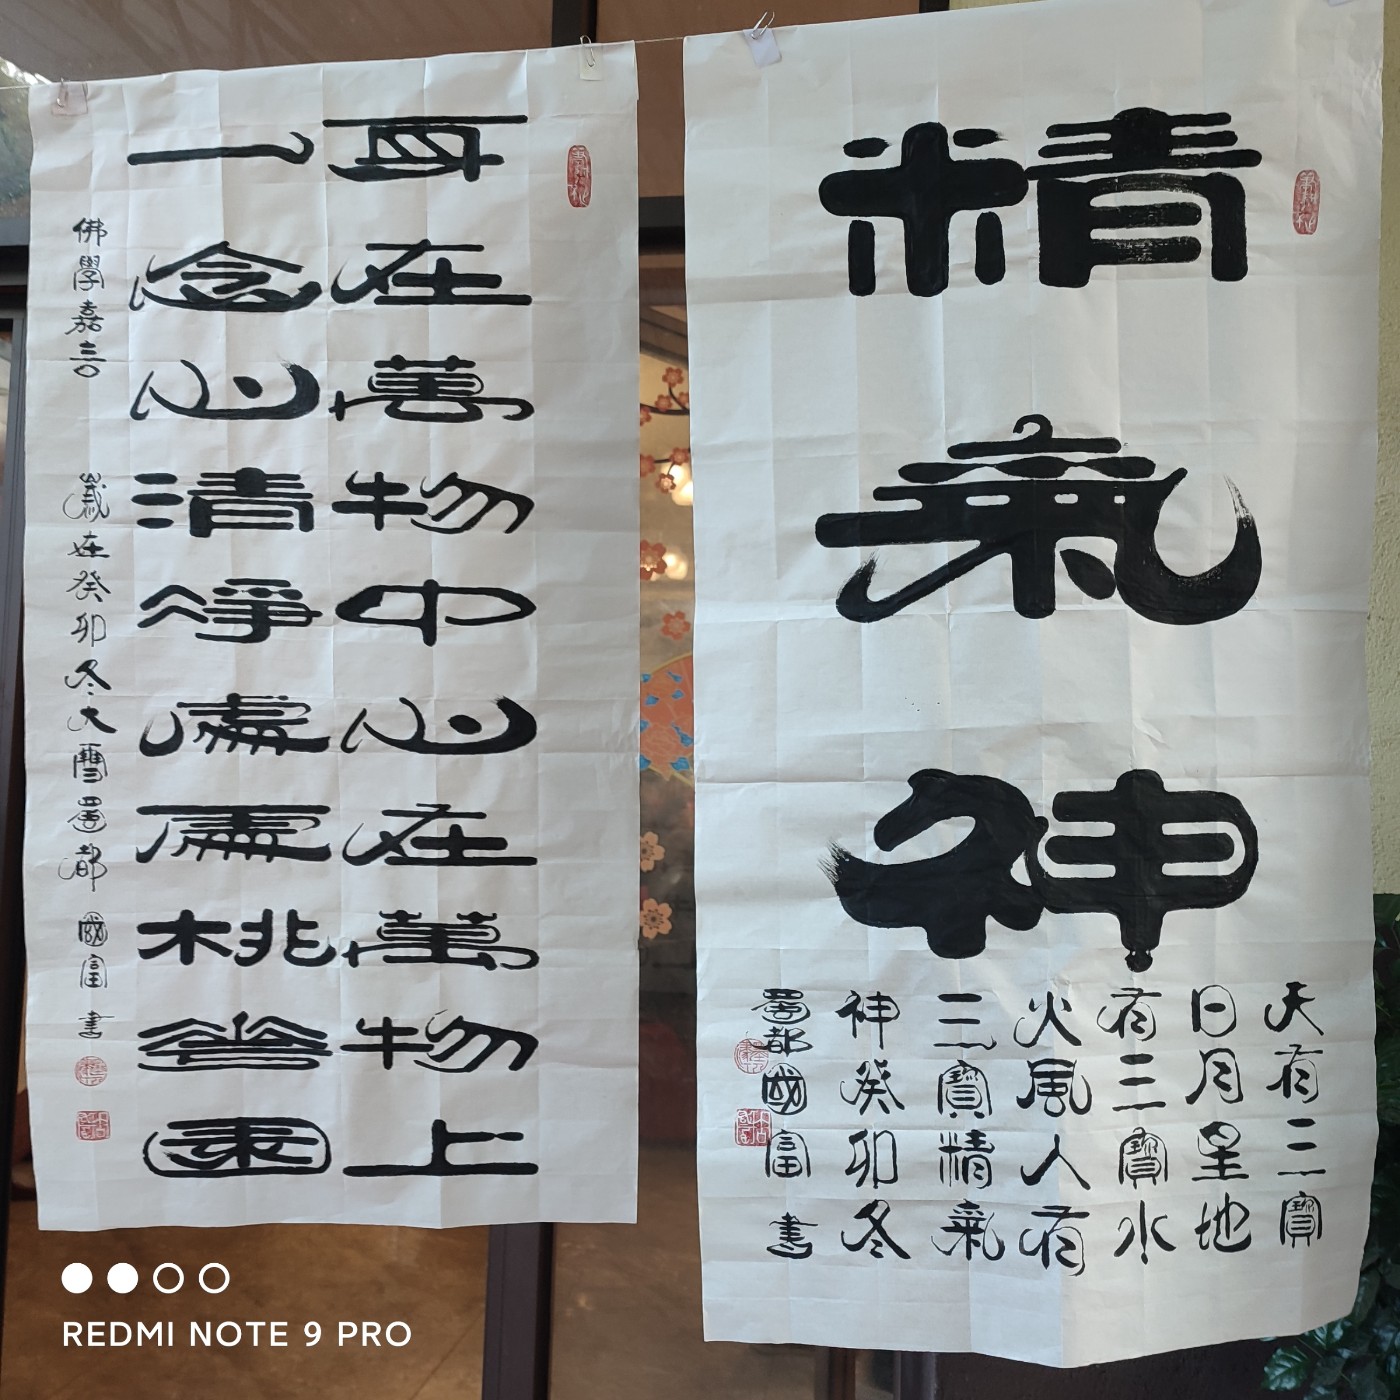 精氣神
天有三寶
日月星地
有三寶水
火風人有
三寶精氣
神癸卯冬
蜀都國富書
身在萬物中心在萬物上
一念心清淨處處桃華園
佛學嘉言 歲在癸卯冬大雪蜀都 國富 書
REDMI NOTE 9 PRO